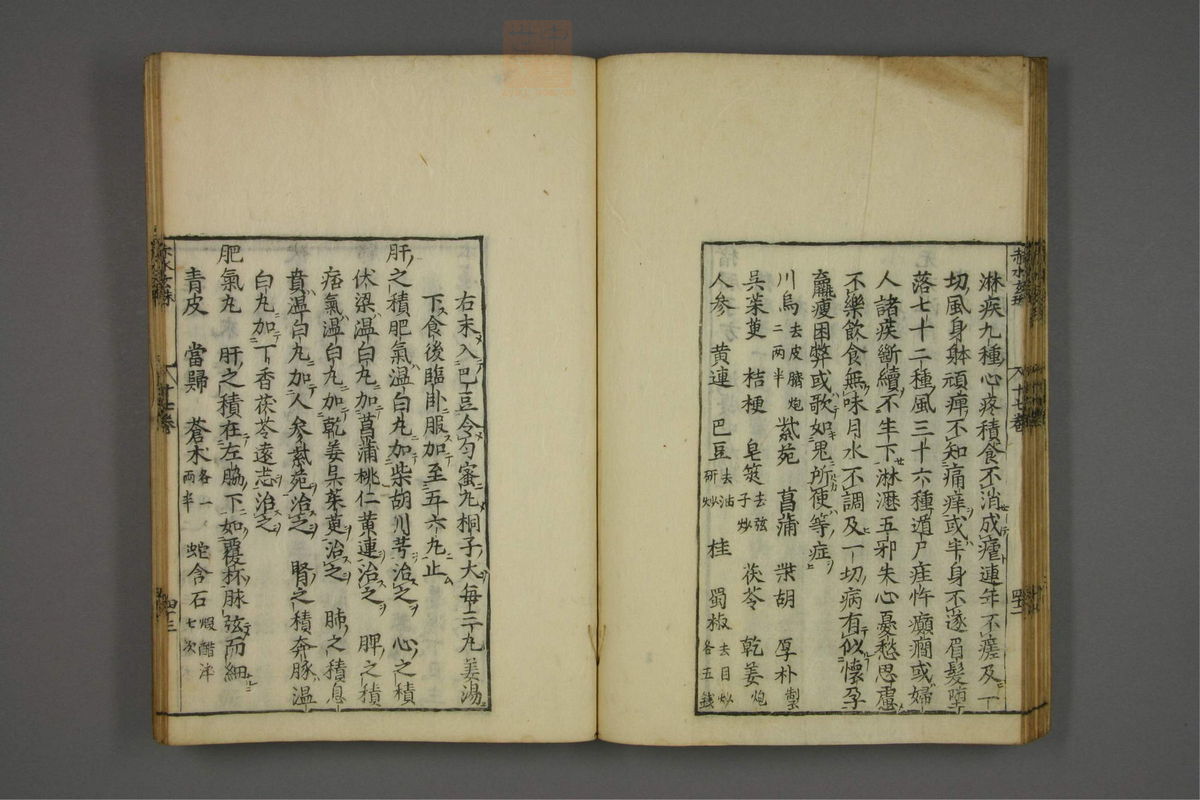 淋疾九種心疼積食不消成瘧連年不瘥及一
切風身躰頑痺不知痛痒或半身不遂眉髮墮
落七十二種風三十六種遁尸疰忤癲癎或婦
人諸疾斷續不生下淋瀝五邪失心憂愁思慮
不樂飲食無味月水不調及一切病有似懷孕
羸瘦困弊或歌如鬼所使等症
川烏去皮臍炮二兩半 紫苑 菖蒲 柴胡 厚朴製
吳茱萸 桔梗 皂莢去弦子炒 茯苓 乾姜炮
人參 黃連 巴豆去油研炒 桂 蜀椒去目炒各五錢
赤水玄珠 十七卷 四十二
右末入巴豆令勻蜜丸桐子大每三丸姜湯
下食後臨卧服加至五六丸止
肝之積肥氣溫白丸加柴胡川芎治之 心之積
伏梁溫白丸加菖蒲桃仁黃連治之 脾之積
痞氣溫白丸加乾姜吳茱萸治之 肺之積息
賁溫白丸加人參紫苑治之 腎之積奔豚溫
白丸加丁香茯苓遠志治之
肥氣丸 肝之積在左脇下如覆杯脉弦而細
青皮 當歸 蒼朮各一兩半 蛇含石煆醋淬七次
赤水玄珠 十七卷 四十三